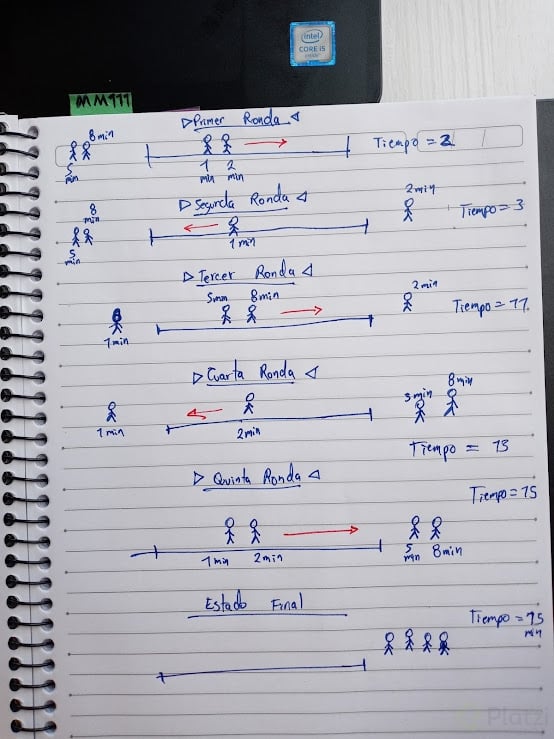 intel
CORE i5
MM111
▷Primer Ronda◁
8min
5
min
1
min
2
min
Tiempo = 2
▷ Segunda Ronda ◁
8
min
5
min
1min
2min
Tiempo = 3
▷ Tercer Ronda ◁
1min
5min
8min
2min
Tiempo = 11.
▷ Cuarta Ronda ◁
1min
2min
5min
8min
Tiempo = 13
▷ Quinta Ronda ◁
Tiempo = 15
1min
2min
5
min
8min
Estado Final
Tiempo = 15
min
Platzi